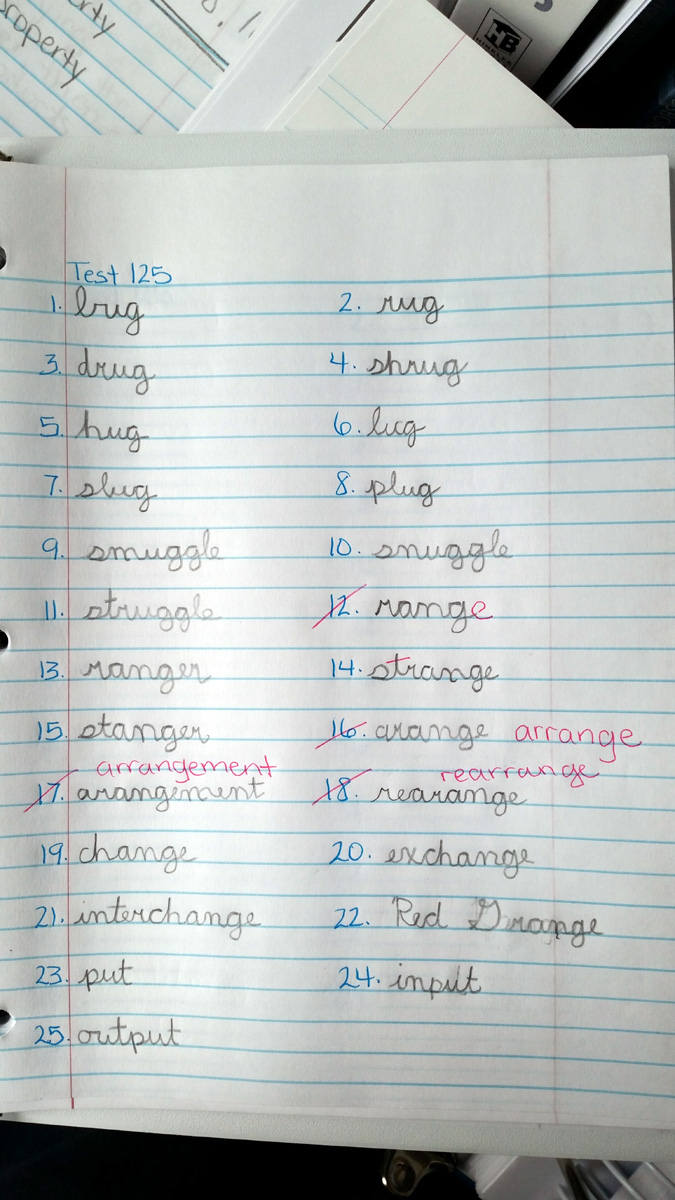 rty
roperty
HB
HINKLER
Test 125
1. brug 2. rug
3. drug 4. shrug
5. hug 6. lug
7. slug 8. plug
9. smuggle 10. snuggle
11. struggle 12. range
13. ranger 14. strange
15. stanger 16. arange arrange
arrangement rearrange
17. arangement 18. rearange
19. change 20. exchange
21. interchange 22. Red Grange
23. put 24. input
25. output